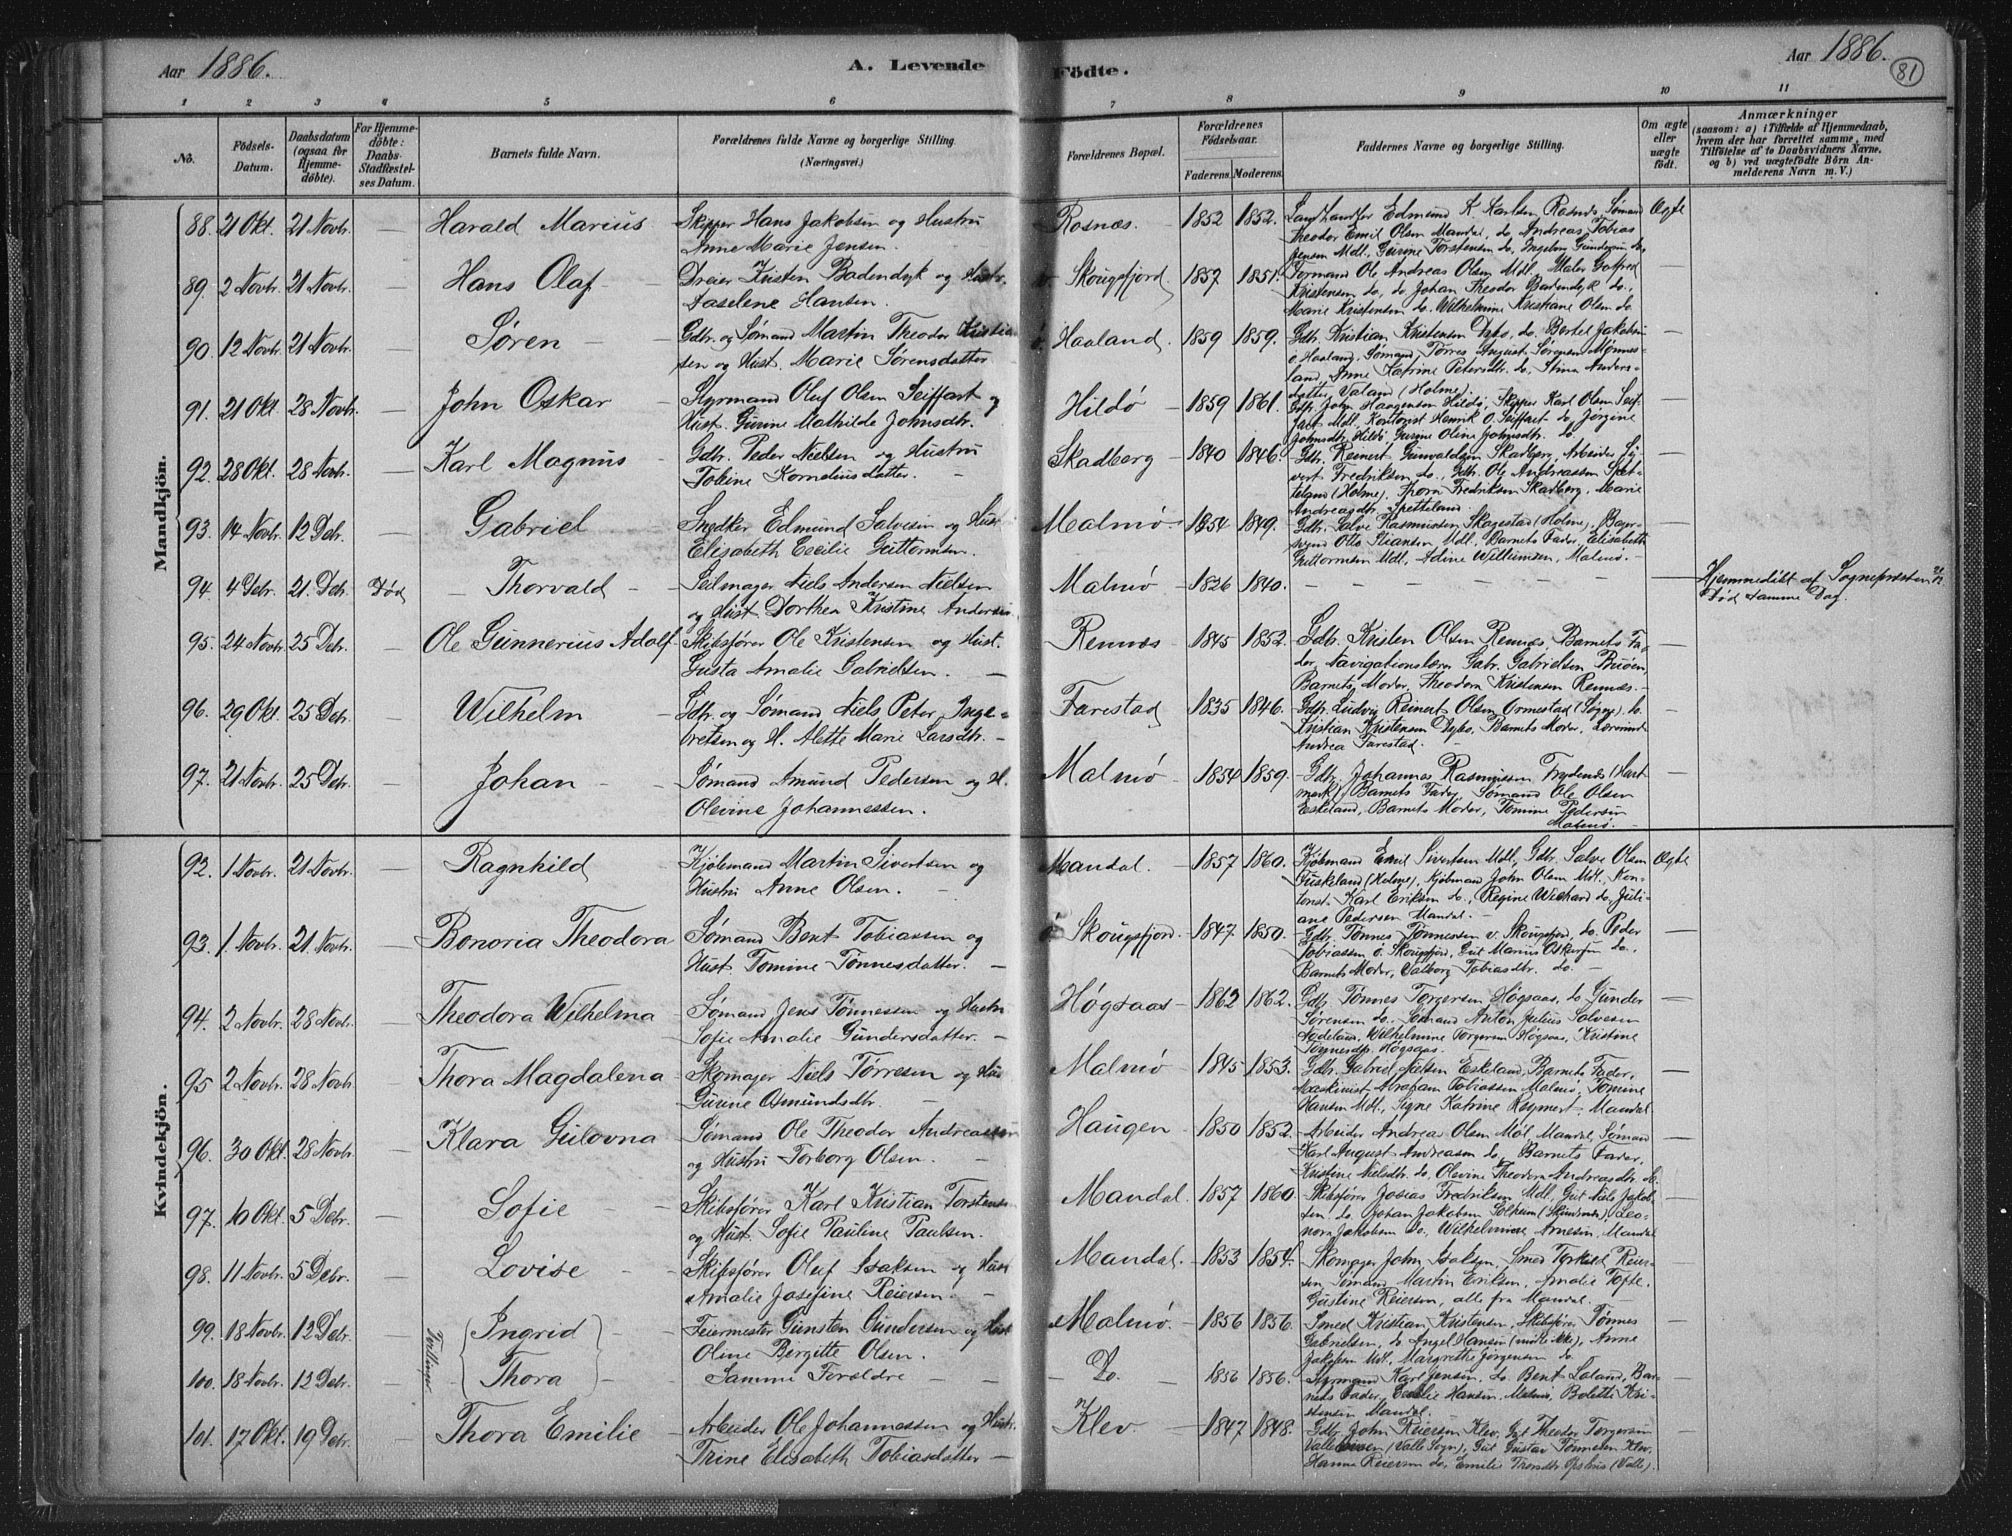 Aar 1886. A. Levende Födte. Aar 1886. 81
1 2 3 4 5 6 7 8 9 10 11
No.
Födsels-Datum.
Daabsdatum (ogsaa for Hjemme-døbte).
For Hjemme-døbte: Daabs-Stadfæstel-ses Datum.
Barnets fulde Navn.
Forældrenes fulde Navne og borgerlige Stilling (Næringsvei.)
Forældrenes Bopæl.
Forældrenes Födselsaar.
Faderens. Moderens.
Faddernes Navne og borgerlige Stilling.
Om ægte eller uægte födt.
Anmærkninger
(saasom: a) i Tilfælde af Hjemmedaab,
hvem der har forrettet samme, med
Tilföielse af to Daabsvidners Navne,
og b) ved uægtefödte Börn An-
melderens Navn m. V.)
Mandkjön.
88. 21 Okt. 21 Novbr. — Harald Marius Skipper Hans Jakobsen og Hustru
Anne Marie Jensen.
Rosnæs. 1852 1852. Landhandler Edmund K. Karlsen Rosnæs, Sømand Ægte
Theodor Emil Olsen Mandal, do Andreas Tobias
Jensen Mdl, Gurine Torstensen do, Ingeborg Gundersen do.
89. 2 Novbr. 21 Novbr. — Hans Olaf Dreier Kristen Badendyk og Hustr.
Aaselene Hansen.
v. Skougsfjord 1857 1851. Formand Ole Andreas Olsen Mdl, Maler Gotfred —
Kristensen do, do Johan Theodor Badendyk do,
Marie Kristensen do. Wilhelmine Kristiane Olsen do
90. 12 Novbr. 21 Novbr. — Søren Gdbr. og Sømand Martin Theodor Kristian-
sen og Hust. Marie Sørensdatter
ö. Haaland. 1859 1859. Gdbr. Kristian Kristensen Dybo, do. Bertel Jakobsen —
ö. Haaland, Sømand Tørres August Sørensen Mønnes-
land, Anne Katrine Petersdtr. do, Stina Anders-
datter, Valand (Holme).
91. 21 Okt. 28 Novbr. — John Oskar Styrmand Oluf Olsen Seiffart og
Hust. Gurine Mathilde Johnsdtr.
Hildö 1859 1861. Gdbr. John Haagensen Hildö, Skipper Karl Olsen Seif-
fart Mdl, Kontorist Henrik O. Seiffart do, Jørgine
Johnsdtr. Hildö, Gurine Oline Johnsdtr. do.
92. 28 Okt. 28 Novbr. — Karl Magnus Gdbr. Peder Nielsen og Hustru
Tobine Korneliusdatter.
Skadberg 1840 1846. Gdbr. Reinert Gunvaldsen Skadberg, Arbeider Sy-
vert Fredriksen do, Gdbr. Ole Andreassen Spet-
teland (Holme), Thora Fredriksen Skadberg, Marie
Andreasdtr. Spetteland.
93. 14 Novbr. 12 Debr. — Gabriel Snedker Edmund Salvesen og Hust
Elisabeth Cecilie Guttormsen.
Malmö 1854 1849. Gdbr. Salve Rasmussen Skagestad (Holme), Bager-
svend Otto Stiansen Mdl. Barnets Fader, Elisabeth
Guttormsen Mdl, Adine Willumsen, Malmö.
94. 4 Debr. 21. Debr. Død Thorvald Seilmager Niels Andersen Nielsen
og Hust. Dorthea Kristine Andersen
Malmö 1836 1840. — Hjemmedöbt af Sognepresten
Död samme Dag.
95. 24 Novbr. 25 Debr. — Ole Gunnerius Adolf Skibsfører Ole Kristensen og Hust.
Gusta Amalie Gabrielsen.
Rennæs 1845 1852. Gdbr. Kristen Olsen Rennæs, Barnets Fa-
der, Navigationslærer Gabr. Gabrielsen
Barnets Moder, Theodora Kristensen Rennæs.
96. 29 Okt. 25 Debr. — Wilhelm Gdbr. og Sømand Niels Peter Inge-
bretsen og H. Alette Marie Larsdtr.
Farestad 1835 1846. Gdbr. Ludvig Reinert Olsen Ormestad (Sogne), do.
Kristian Kristensen Dybo, Barnets Moder, Lærerinde
Andrea Farestad.
97. 21 Novbr. 25 Debr. — Johan Sømand Amund Pedersen og H.
Olevine Johannessen.
Malmö 1854 1859. Gdbr. Johannes Rasmussen Frydenæs (Hart-
mark), Barnets Fader, Sømand Ole Olsen
Eskeland, Barnets Moder, Tomine Pedersen
Malmö.
Kvindekjön.
92. 1 Novbr. 21 Novbr. — Ragnhild Kjøbmand Martin Sivertsen og
Hustru Anne Olsen.
Mandal. 1857 1860. Kjøbmand Emil Sivertsen Mdl, Gdbr. Salve Olsen Ægte
Fuskeland (Holme), Kjøbmand John Olsen Mdl, Kon-
torist Karl Eriksen do, Regine Wishard do, Juli-
ane Pedersen Mandal.
93. 1 Novbr. 21 Novbr. — Bonoria Theodora Sømand Bent Tobiassen og
Hust. Tomine Tønnesdatter.
ö. Skougsfjord. 1847 1850. Gdbr. Tønnes Tønnessen v. Skougsfjord, do. Peder
Tobiassen ö. Skougsfjord, Gut Marius Oskarsen do,
Barnets Moder, Valborg Tobiasdtr. do.
94. 2 Novbr. 28 Novbr. — Theodora Wilhelmina Sømand Jens Tønnessen og Hustru
Sofie Amalie Gundersdatter.
Høgsaas 1862 1862. Gdbr. Tønnes Torgersen Høgsaas, do Gunder
Sørensen do. Sømand Anton Julius Salvesen
Nodeland, Wilhelmine Torgersen Høgsaas, Kristine
Tønnesdtr. Høgsaas.
95 2 Novbr. 28 Novbr. — Thora Magdalena Skomager Niels Tørresen og Hus
Gurine Osmundsdtr.
Malmö 1845 1853. Gdbr. Gabriel Nielsen Eskeland, Barnets Fader,
Maskinist Abraham Tobiassen Malmö, Tomine
Hansen Mdl., Signe Katrine Reymert, Mandal
96. 30 Okt. 28 Novbr. — Klara Gulovna Sømand Ole Theodor Andreassen
og Hustru Torborg Olsen.
Haugen 1850 1852. Arbeider Andreas Olsen Möl Mandal, Sømand
Karl August Andreasen do, Barnets Fader,
Kristine Nielsdtr. do, Olevine Theodora Andreasdtr. do.
97. 10 Okt. 5 Debr. — Sofie Skibsfører Karl Kristian Torstensen
og Hust. Sofie Pauline Paulsen.
Mandal. 1857 1860. Skibsfører Josias Fredriksen Mdl, Gut Niels Jakob-
sen do. Johan Jakobsen Solheim (Skindsnæs), Leo-
nora Jakobsen do. Wilhelmine Arnesen, Mandal
98. 11 Novbr. 5 Debr. — Lovise Skibsfører Oluf Isaksen og Hust
Amalie Josefine Reiersen.
Mandal. 1853 1854. Skomager John Isaksen, Smed Torkild Reier-
sen, Sømand Martin Eriksen, Amalie Tofte,
Gustine Reiersen, alle fra Mandal.
99. 18 Novbr. 12 Debr. Tvillinger Ingrid Feiermester Gunsten Gundersen og Hust
Oline Bergitte Olsen.
Malmö. 1856 1856. Smed Kristian Kristensen, Skibsfører Tønnes
Gabrielsen, do Angel Hansen (mötte ikke), Anne
Jakobsen Mdl, Margrethe Jørgensen do.
100. 18 Novbr. 12 Debr. Thora Samme Forældre
Do. 1856 1856. Styrmand Karl Jensen, do. Bent Loland, Bar-
nets Fader, Emilie Hansen, Malmö, Bolette Kri-
stensen Mandal.
101. 17 Okt. 19 Debr. — Thora Emilie Arbeider Ole Johannessen og Hustr.
Trine Elisabeth Tobiasdatter
Klev. 1847 1848. Gdbr. John Reiersen Klev, Gut Theodor Torgersen
(Valle Sogn), Gut Gustav Tønnesen Klev,
Hanna Reiersen do, Emilie Trondsdtr. (Valle).